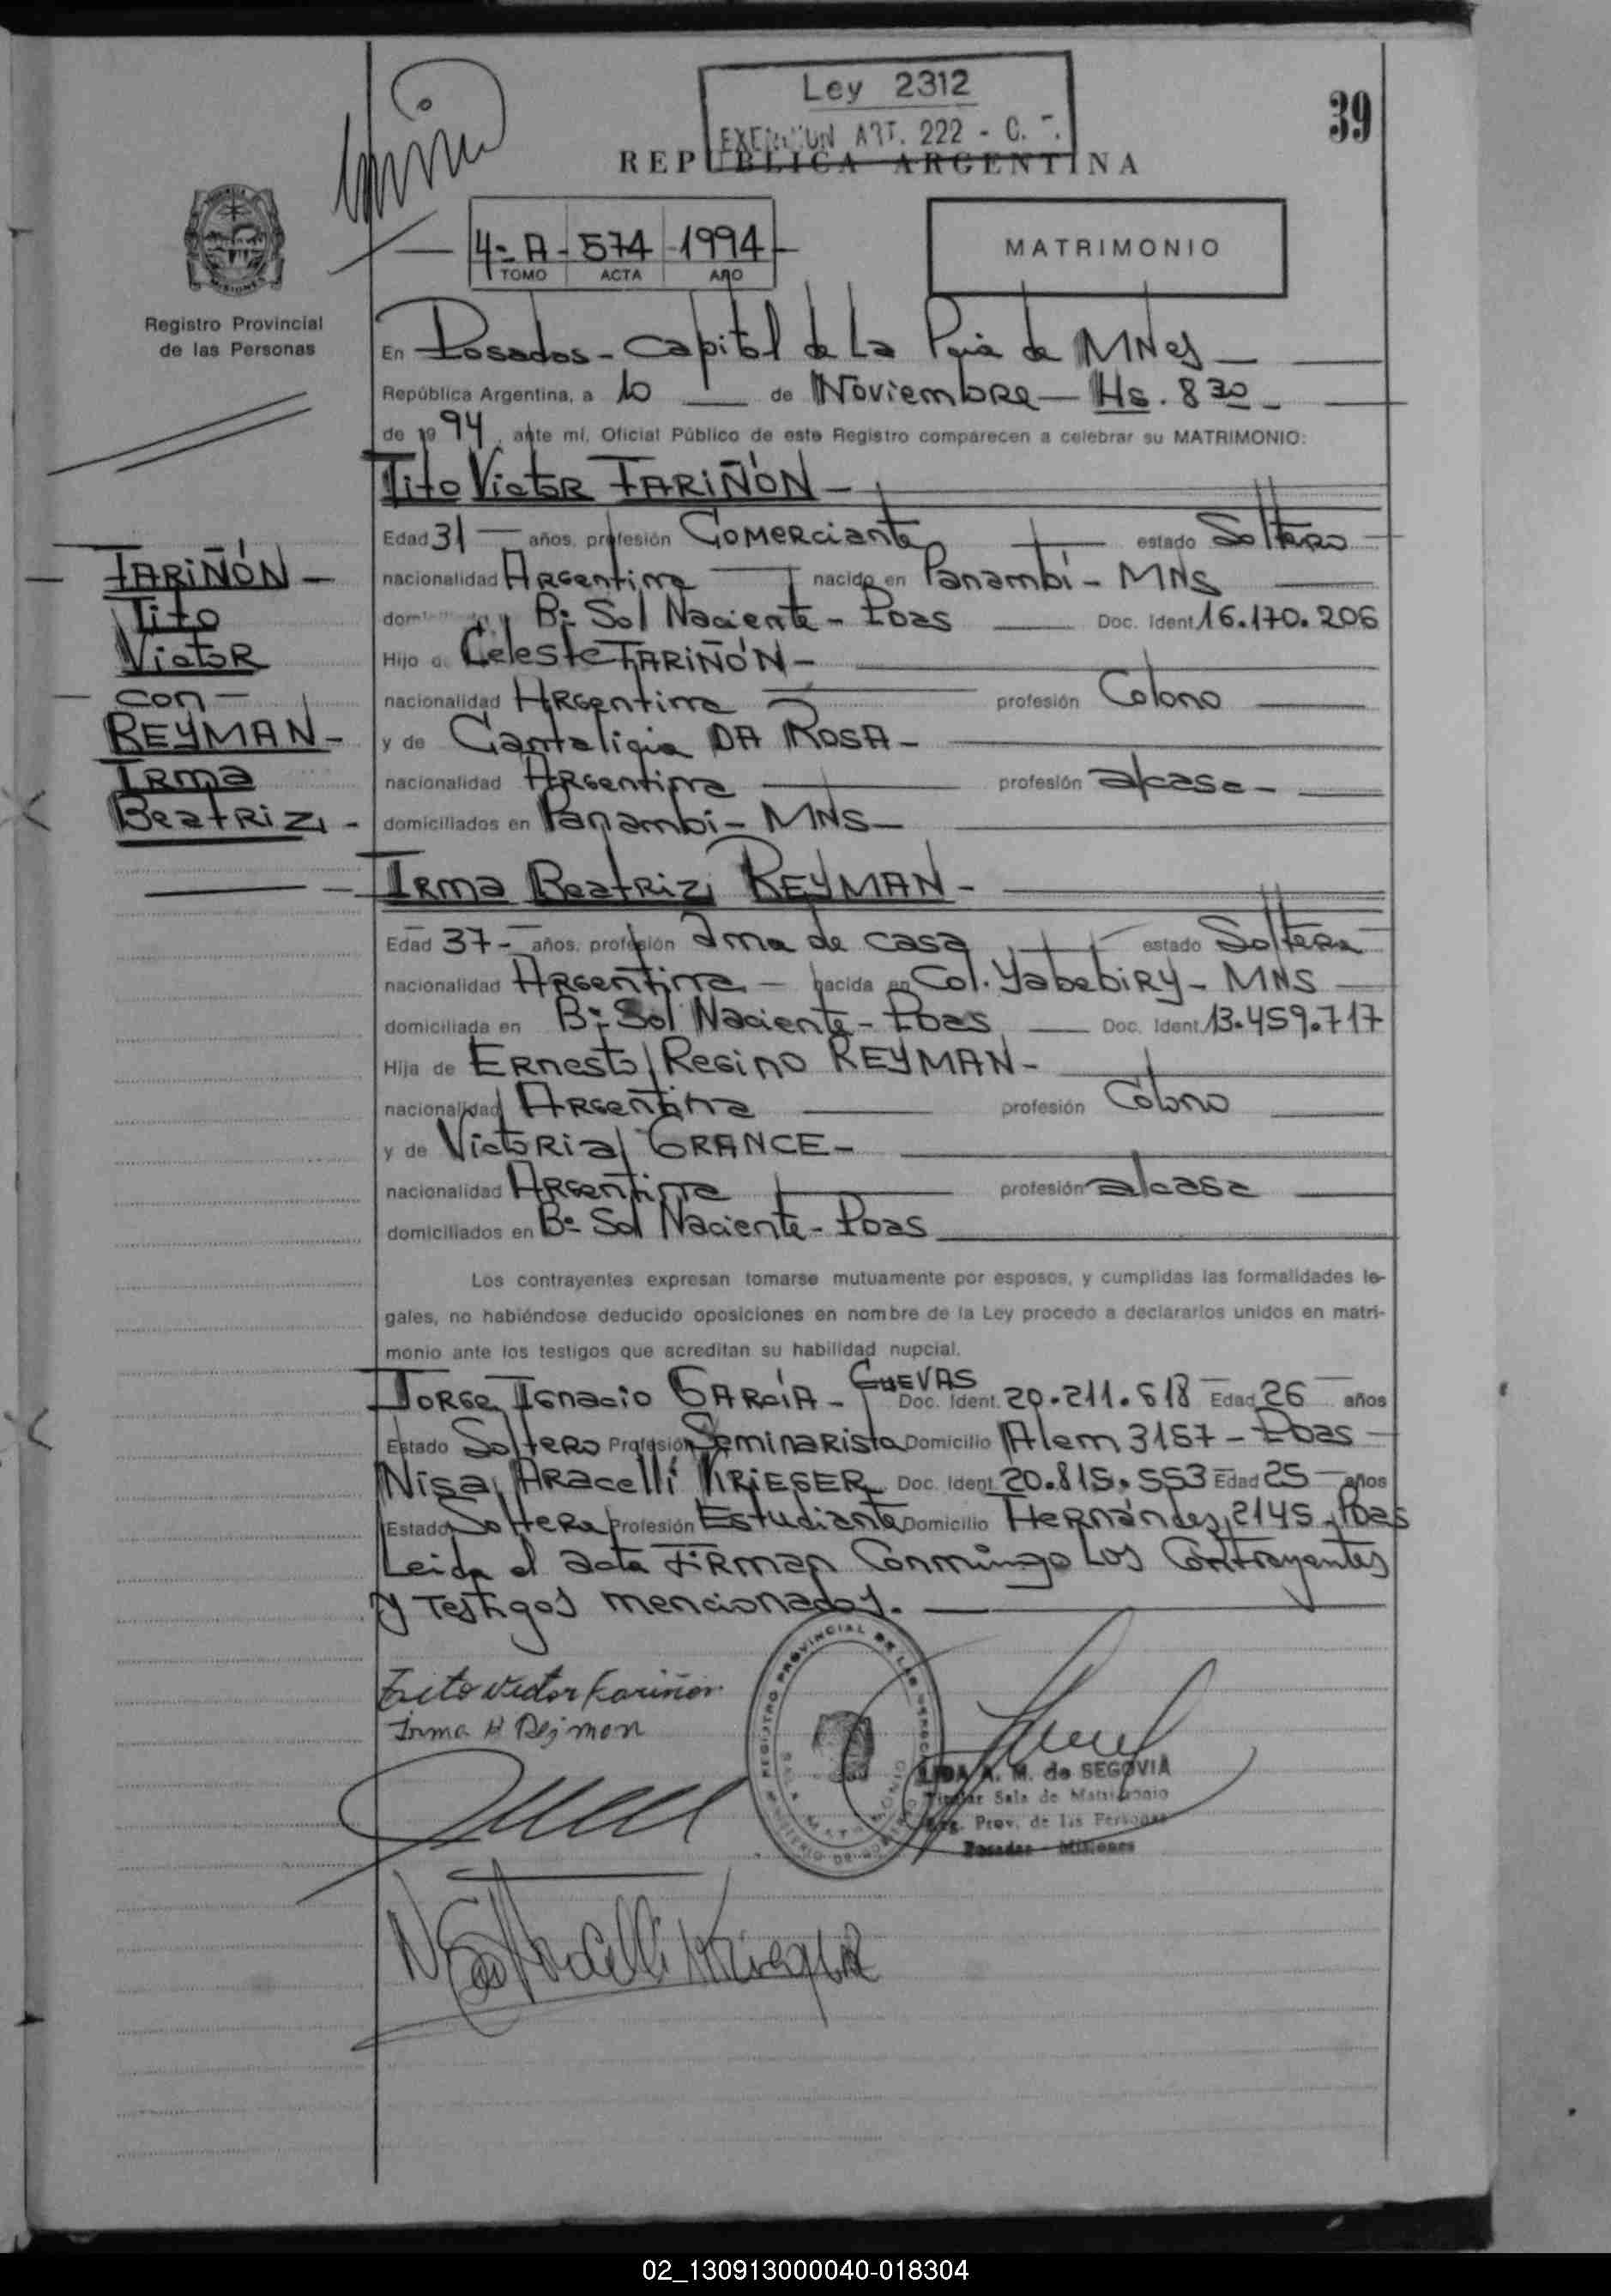 Ley 2312
ART. 222 - C.
39
REPUBLICA ARGENTINA
4º A - 574 - 1994
TOMO ACTA AÑO
MATRIMONIO
MISIONES
Registro Provincial
de las Personas
En Posadas - Capital de La Pcia de MNes
República Argentina, a 10 de Noviembre - Hs. 8 30
de 1994, ante mí, Oficial Público de este Registro comparecen a celebrar su MATRIMONIO:
Tito Victor FARIÑÓN -
Edad 31 - años, profesión Comerciante estado Soltero
nacionalidad Argentina nacido en Panambí - MNS
Bº Sol Naciente - Pdas Doc. Ident. 16.170.206
Hijo de Celeste FARIÑÓN -
nacionalidad Argentina profesión Colono
y de DA ROSA -
nacionalidad Argentina profesión a/casa -
domiciliados en Panambí - MNS -
FARIÑÓN -
Tito
Victor
- con -
REYMAN -
Irma
Beatriz -
Irma Beatriz REYMAN -
Edad 37 - años, profesión Ama de casa estado Soltera
nacionalidad Argentina - nacida en Col. Yabebiry - MNS
domiciliada en Bº Sol Naciente - Pdas Doc. Ident. 13.459.717
Hija de Ernesto Regino REYMAN -
nacionalidad Argentina profesión Colono
y de Victoria GRANCE -
nacionalidad Argentina profesión a/casa
domiciliados en Bº Sol Naciente - Pdas
Los contrayentes expresan tomarse mutuamente por esposos, y cumplidas las formalidades le-
gales, no habiéndose deducido oposiciones en nombre de la Ley procedo a declararlos unidos en matri-
monio ante los testigos que acreditan su habilidad nupcial.
Jorge Ignacio GARCÍA - CUEVAS Doc. Ident. 20.211.618 Edad 26 años
Estado Soltero Profesión Seminarista Domicilio Alem 3157 - Pdas
Nisa Aracelli KRIEGER Doc. Ident. 20.815.553 Edad 25 años
Estado Soltera Profesión Estudiante Domicilio Hernández 2145 - Pdas
Leida el acta FIRMAN Conmingo Los Contrayentes
y Testigos mencionados. -
Tito Victor Fariñon
Irma B Reimon
REGISTRO PROVINCIAL DE LAS PERSONAS
LIDA A. M. de SEGOVIA
Titular Sala de Matrimonio
Reg. Prov. de las Personas
Posadas - Misiones
02_130913000040-018304